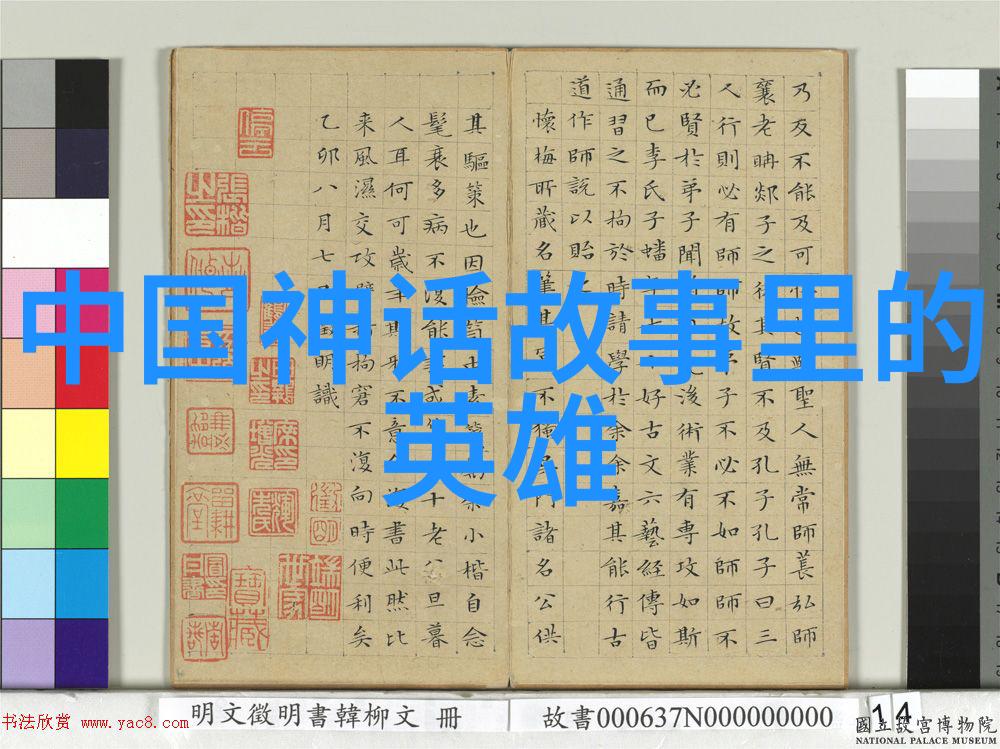 中国神话故事里的
英雄
乃反不能及可
襄老聃郯子之
人行則必有師
必賢於弟子聞
而已李氏子蟠
通習之不拘於時請學於余余嘉其能行古
道作師說以貽
聖人無常師萇弘師
其賢不及孔子孔子曰三
子不必不如師師不
後術業有專攻如斯
好古文六藝經傳皆
懷梅所藏名筆
不獨
諸名公供
其驅策也因
小楷自念
髦衰多病不復能事
十老公旦暮
人耳何可歲
其邪不意
書此然比
来風濕交攻臂
拘窘不復向時便利矣
乙卯八月七
明識
明文徵明書韓柳文 冊
故書000637N000000000
14
書法欣赏 www.yac8.com
國立故宮博物院
NATIONAL PALACE MUSEUM